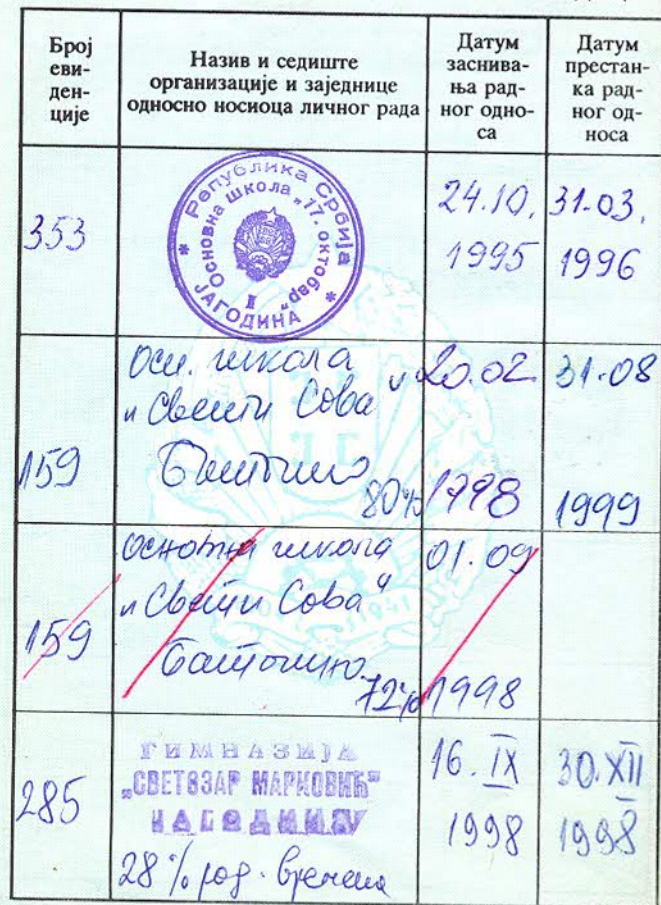 Број
еви-
ден-
ције
Назив и седиште
организације и заједнице
односно носиоца личног рада
Датум
заснива-
ња рад-
ног одно-
са
Датум
престан-
ка рад-
ног од-
носа
353
Република Србија
Основна школа „17. октобар"
II
ЈАГОДИНА
24.10.
1995
31.03.
1996
159
Осн. школа
„Свети Сава"
Баточина
80%
20.02
1998
31.08
1999
159
Основна школа
„Свети Сава"
Баточина
72%
01.09
1998
285
ГИМНАЗИЈА
„СВЕТОЗАР МАРКОВИЋ"
28% рад. времена
16. IX
1998
30. XII
1998